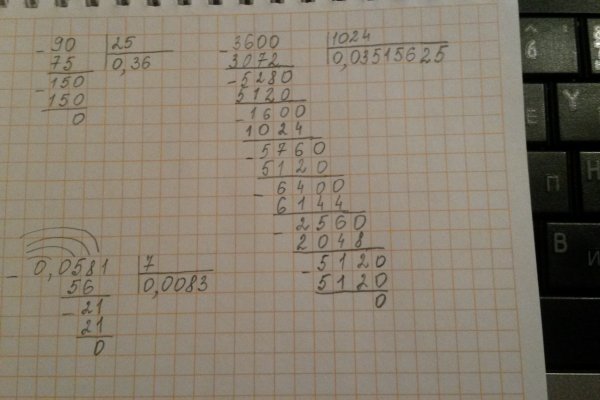 - 90 | 25
75 | 0,36
- 150
150
0
- 3600 | 1024
3072 | 0,03515625
- 5280
5120
- 1600
1024
- 5760
5120
- 6400
6144
- 2560
2048
- 5120
5120
0
- 0,0581 | 7
56 | 0,0083
- 21
21
0